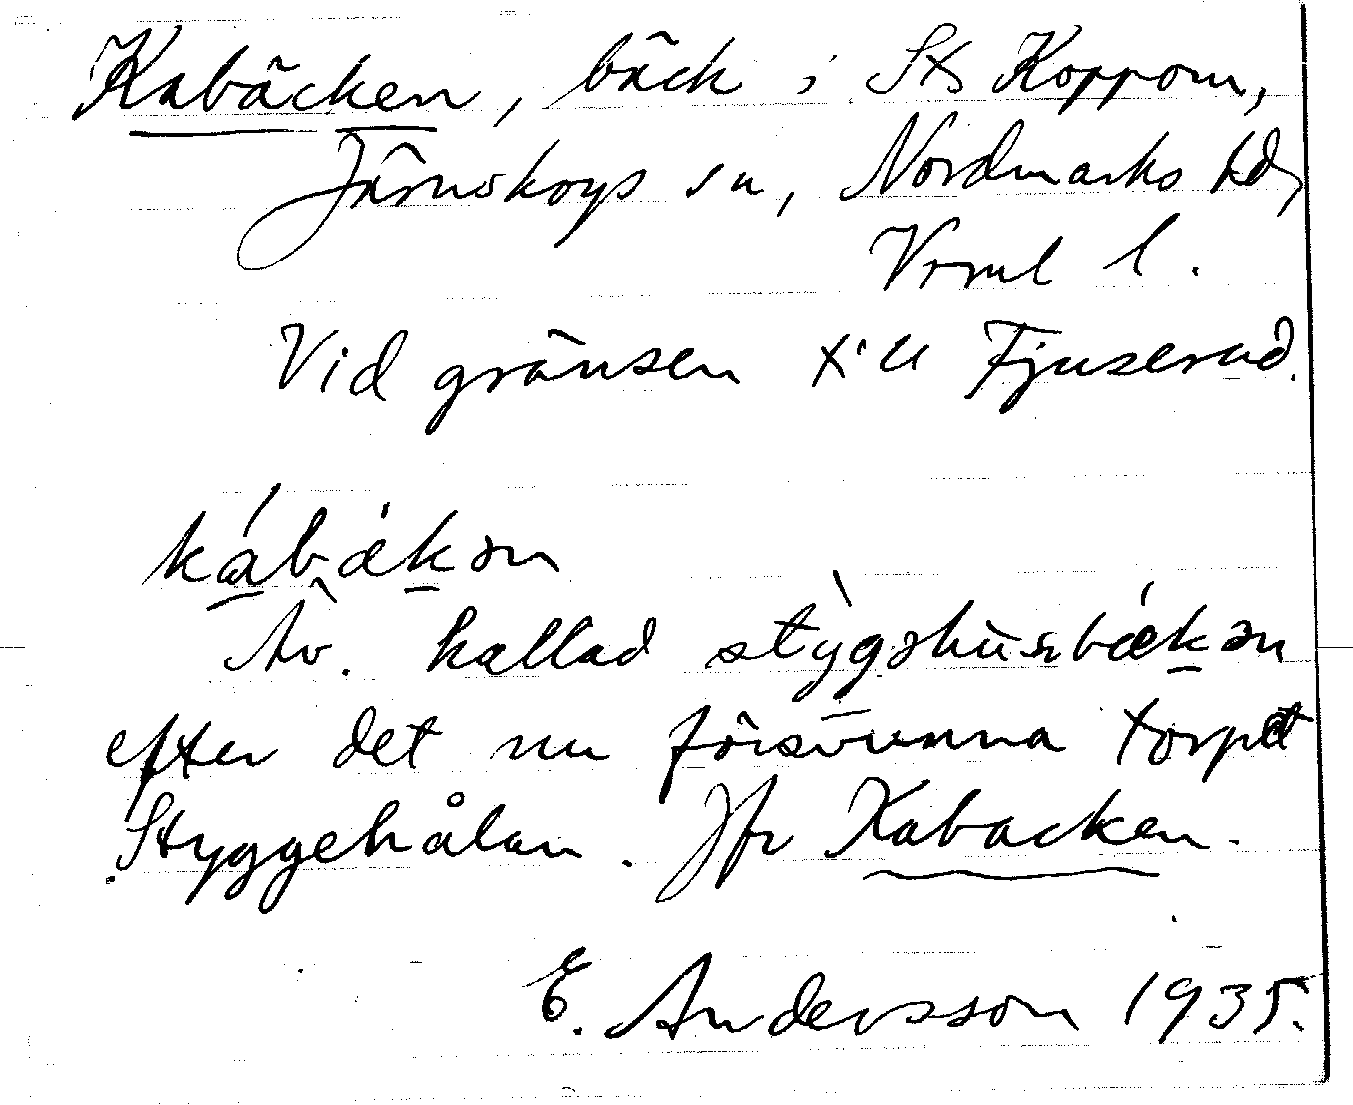 Kabäcken, bäck i St Koppom,
Järnskogs sn, Nordmarks hd,
Vrml l.
Vid gränsen till Fjuserud.
kábækən
Äv. kallad stỳgəhùsbækən
efter det nu försvunna torpet
Styggehålan. Jfr Kabacken.
E. Andersson 1935.